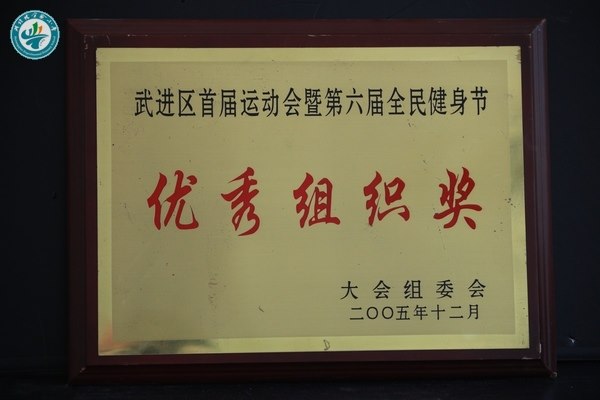 武进区首届运动会暨第六届全民健身节
优秀组织奖
大会组委会
二〇〇五年十二月